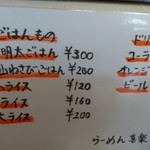 ごはんもの
明太ごはん ¥300
山わさびごはん ¥280
ライス ¥120
ライス ¥160
大ライス ¥200
ドリ
コーラ
オレンジ
ビール
らーめん 喜楽